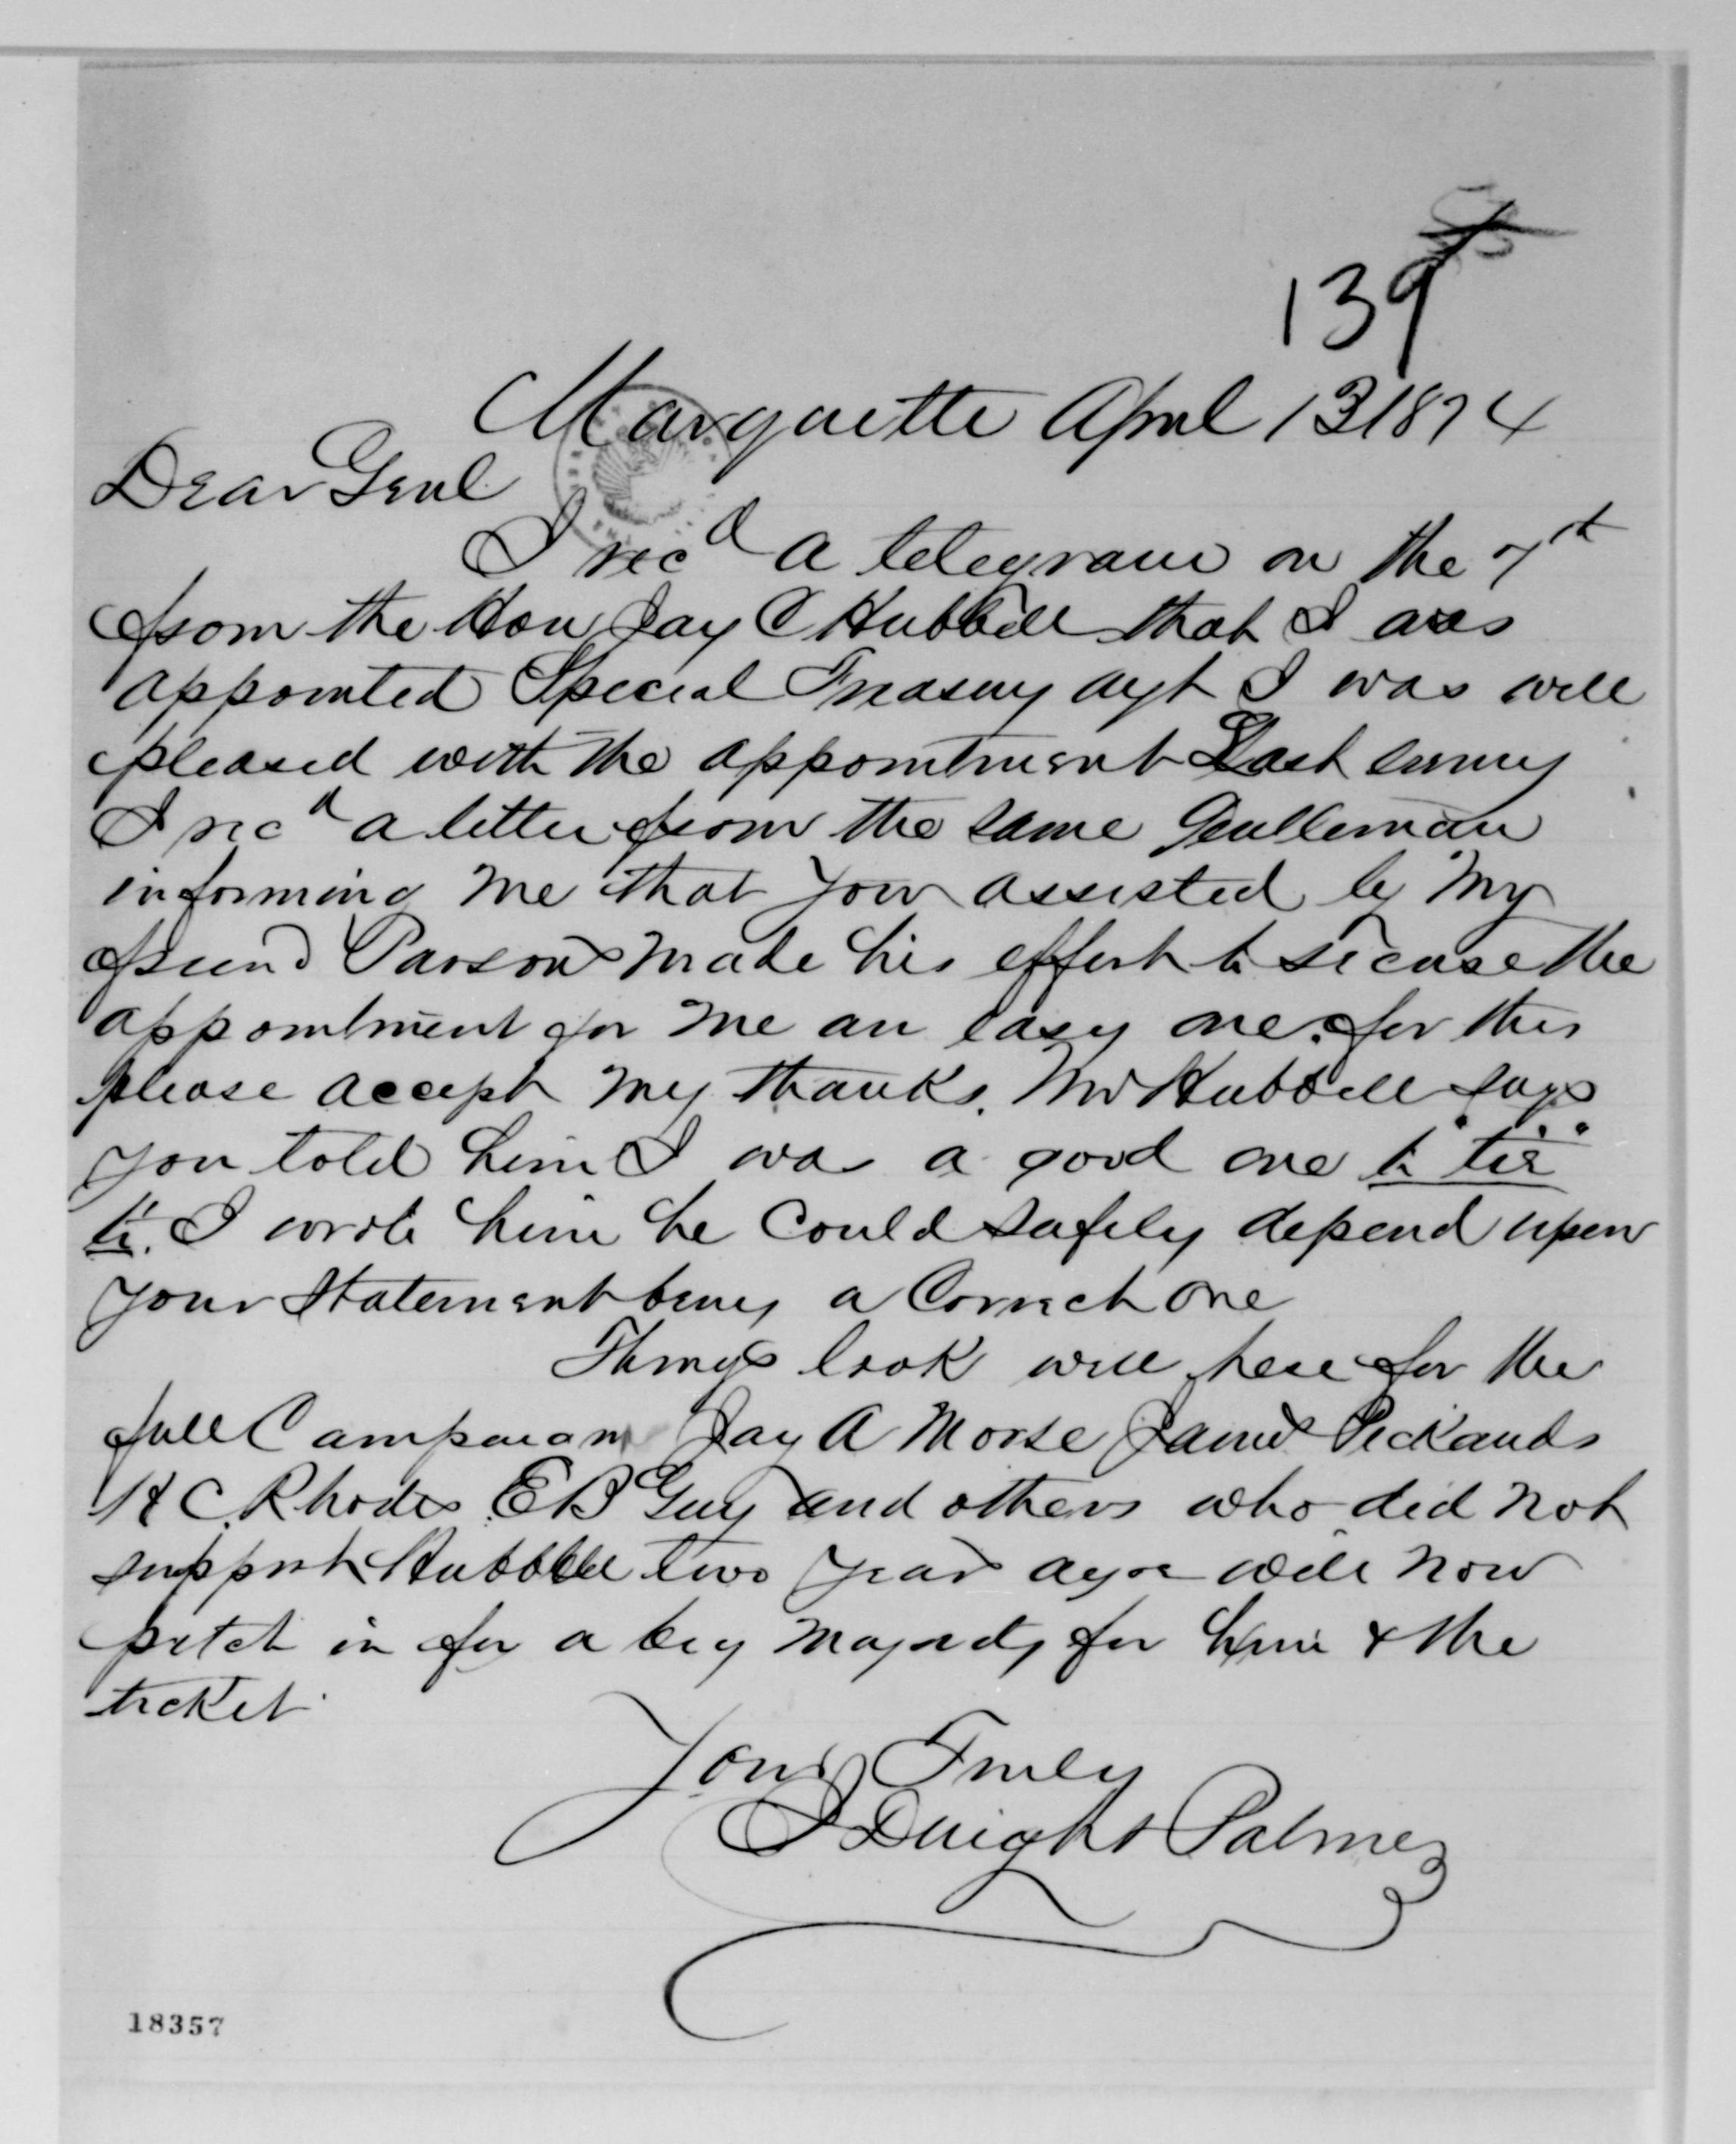 139
Marquette April 13 1874
Dear Genl
I recd a telegram on the 7th
from the Hon Jay C Hubbell that I was
appointed Special Treasury agt I was well
pleased with the appointment Last evening
I recd a letter from the same Gentleman
informing me that you assisted by my
friend Parsons made his effort to secure the
appointment for me an easy one. for this
please accept my thanks. Mr Hubbell says
you told him I was a good one "to tie"
to. I wrote him he could safely depend upon
your statement being a correct one
Things look well here for the
fall Campaign Jay A Morse James Pickands
H C. Rhodes E B Guy and others who did not
support Hubbell two years ago will now
pitch in for a big majority for him & the
ticket.
Yours Truly
J Dwight Palmer
18357